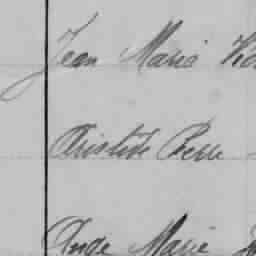 Jean Marie
Aristide Pierre
Ange Marie